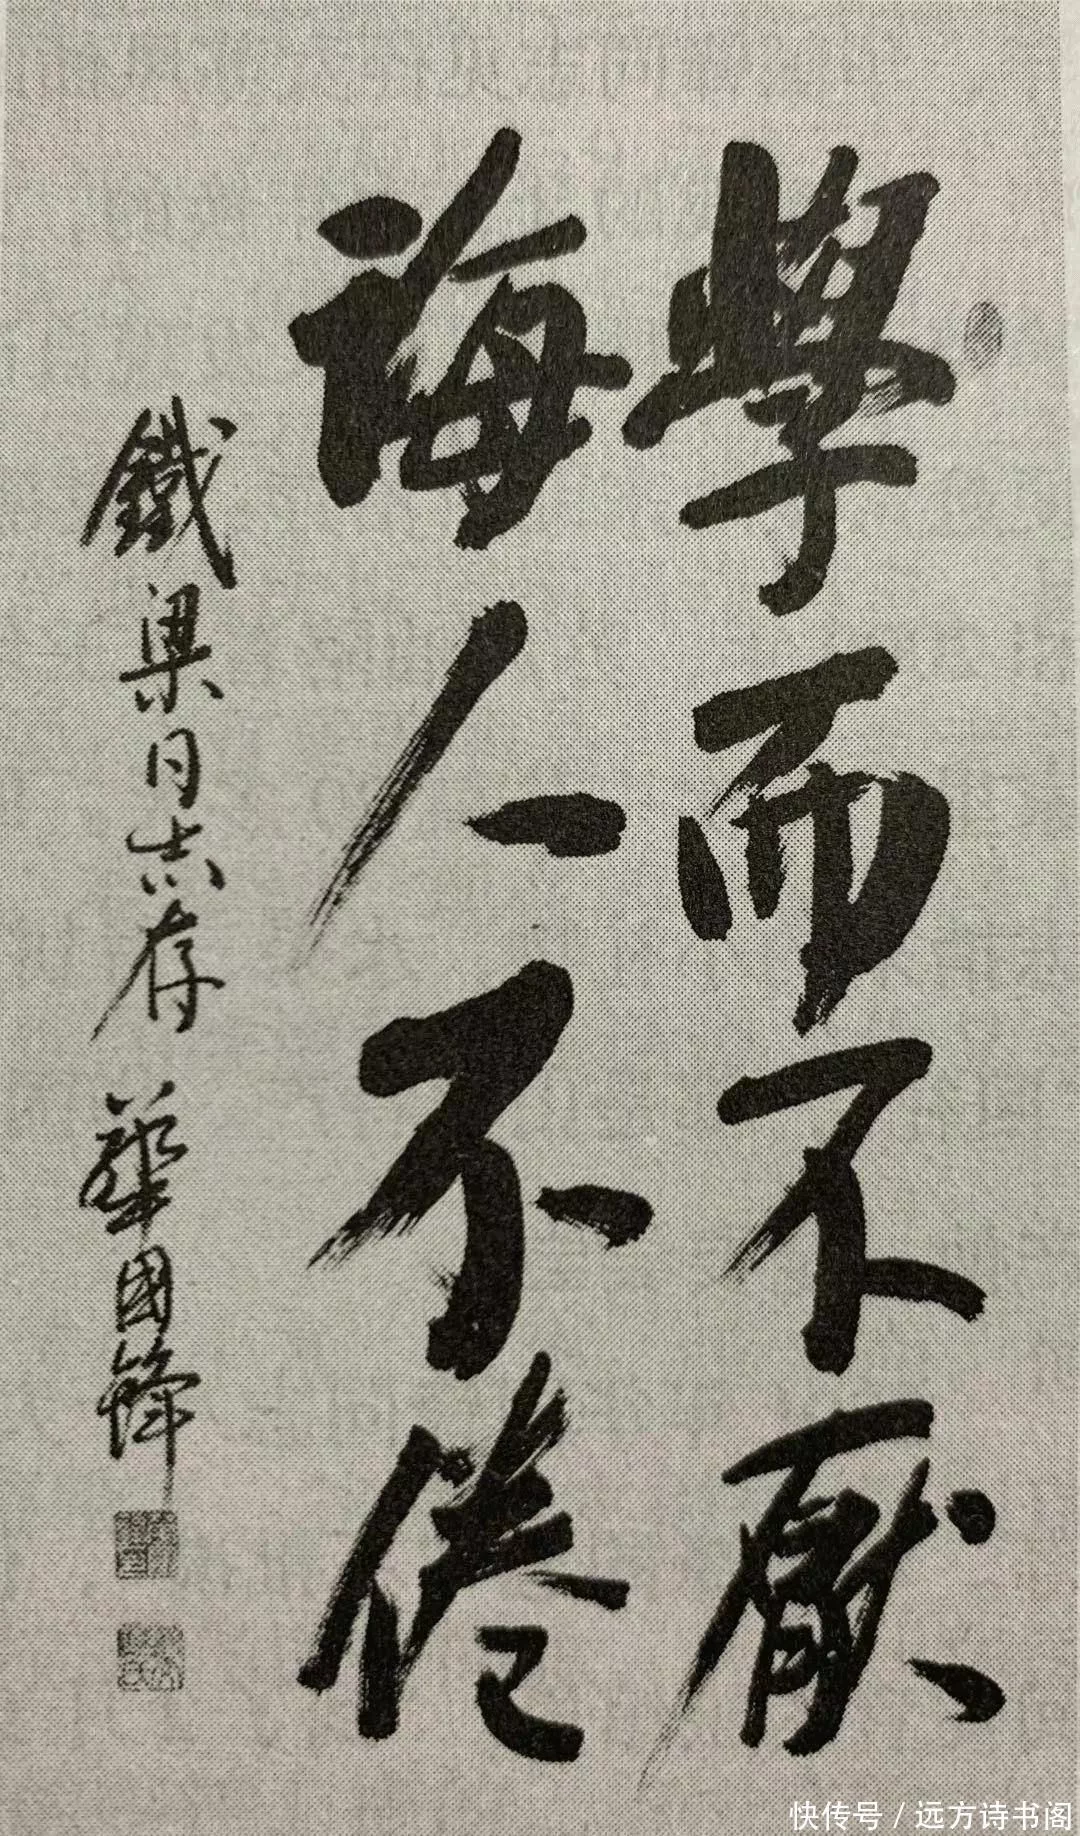 學而不厭
誨人不倦
鐵梁同志存 華國鋒
快传号 / 远方诗书阁